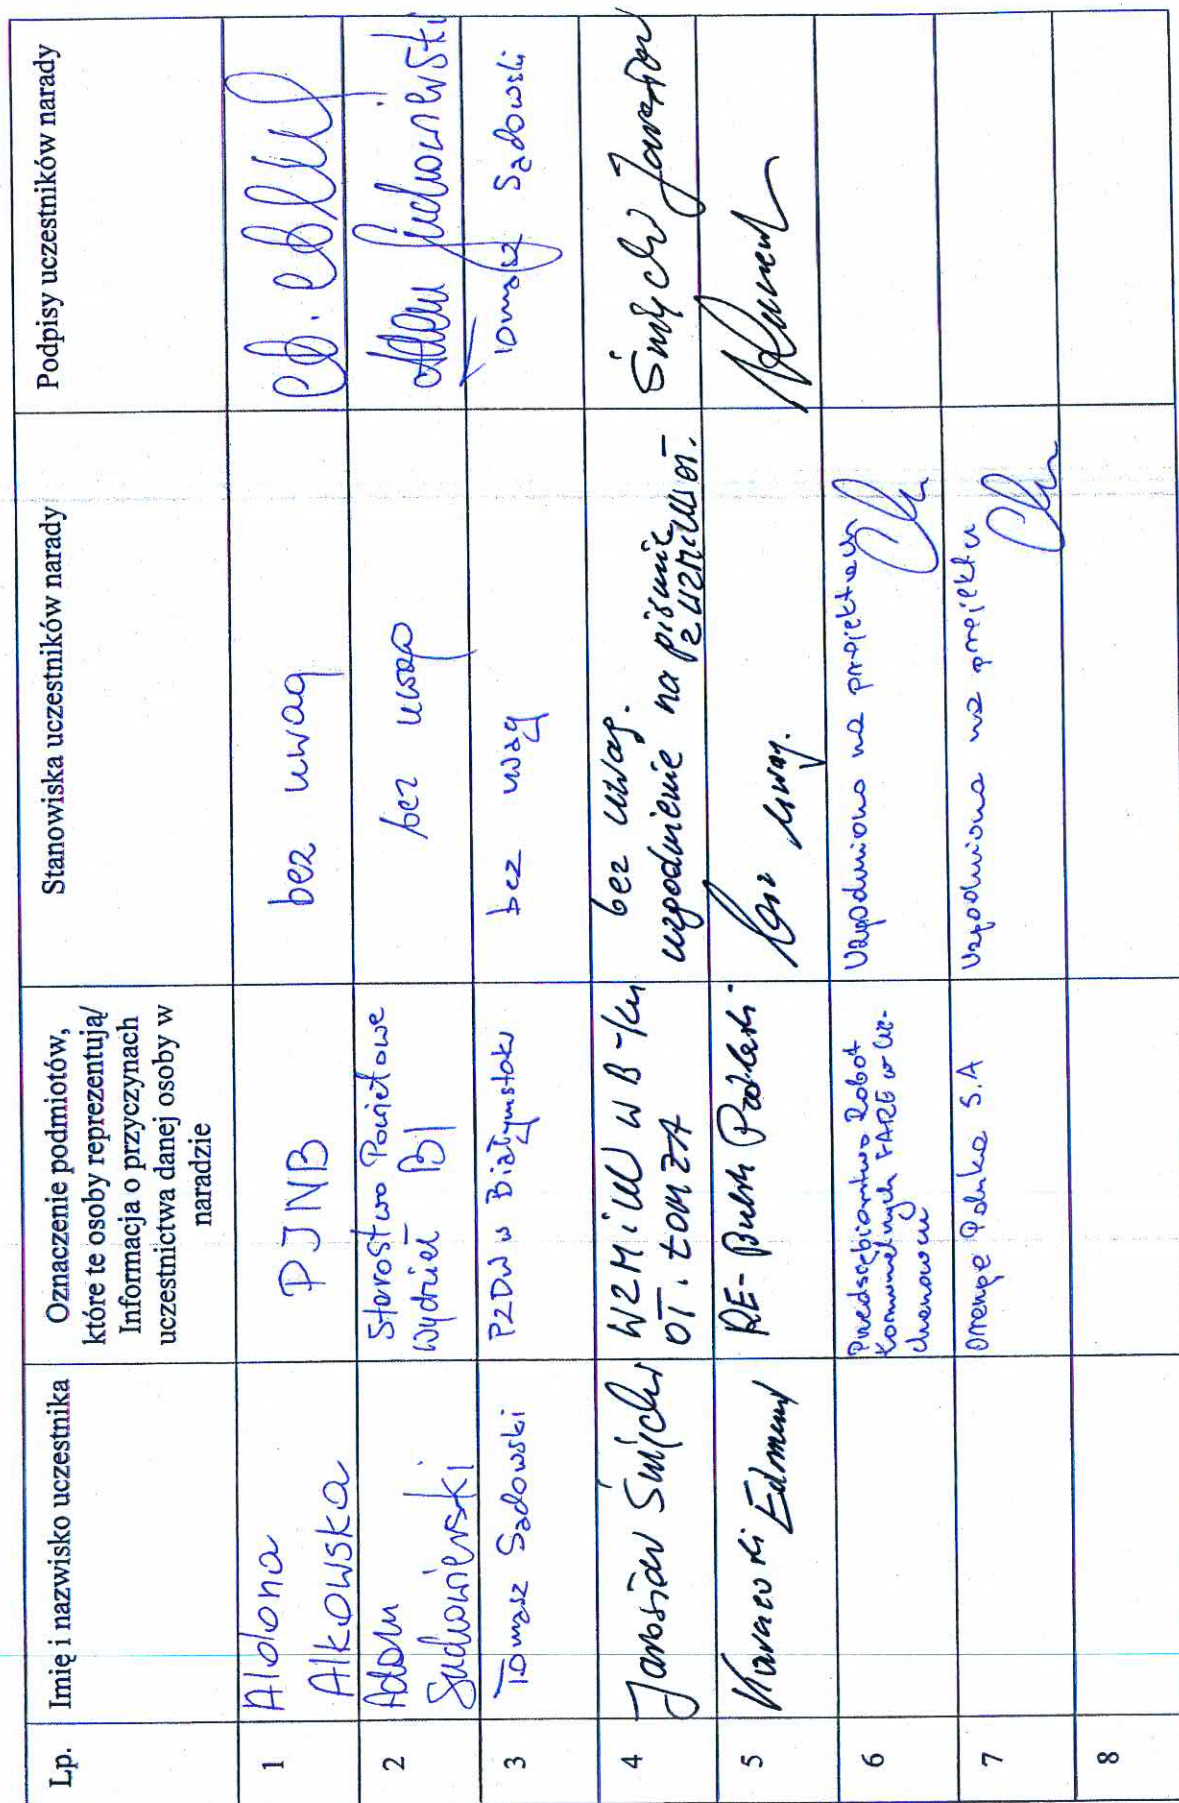 Lp.
Imię i nazwisko uczestnika
Oznaczenie podmiotów,
które te osoby reprezentują/
Informacja o przyczynach
uczestnictwa danej osoby w
naradzie
Stanowiska uczestników narady
Podpisy uczestników narady
1
Aldona
Alkowska
PJNB
bez uwag
2
Adam
Suchowierski
Starostwo Powiatowe
Wydział BI
bez uwag
Adam Suchowierski
3
Tomasz Sadowski
PZDW w Białymstoku
bez uwag
Tomasz Sadowski
4
Jarosław
WZMiUW w B-ku
OT. ŁOMŻA
bez uwag.
uzgodnienie na piśmie
z WZMiUW OT.
Jarosław
5
Edmund
RE- Bielsk Podlaski
bez uwag.
6
Przedsiębiorstwo Robot
Komunalnych FARE w Cie-
chanowcu
Uzgodniono na projekcie
7
Orange Polska S.A
Uzgodniono na projekcie
8